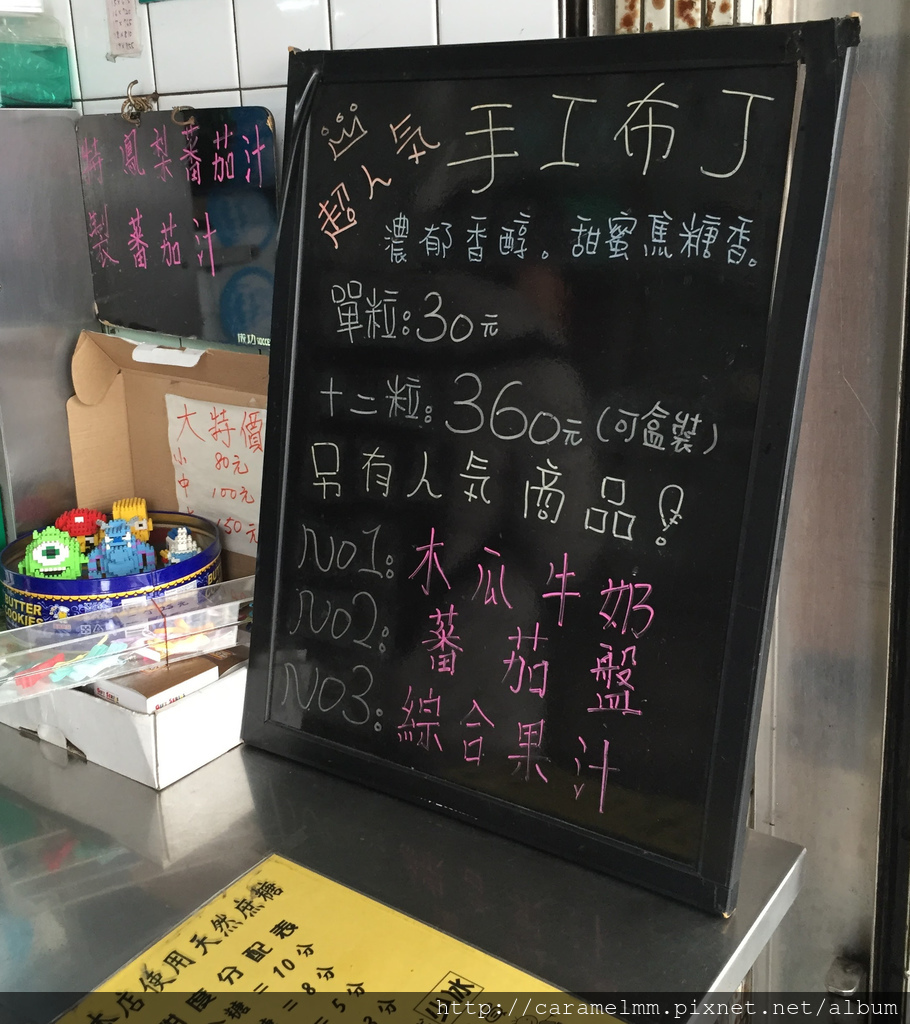 特 鳳梨蕃茄汁
製 蕃茄汁
成功
大特價
小 80元
中 100元
150元
BUTTER
COOKIES
超人气
手工布丁
濃郁香醇。甜蜜焦糖香。
單粒:30元
十二粒:360元(可盒裝)
另有人気商品!
No1: 木瓜牛奶
No2: 蕃茄盤
No3: 綜合果汁
本店使用天然蔗糖
甜度分配表
糖=10分
=8分
=5分
3分
少冰
http://caramelmm.pixnet.net/album